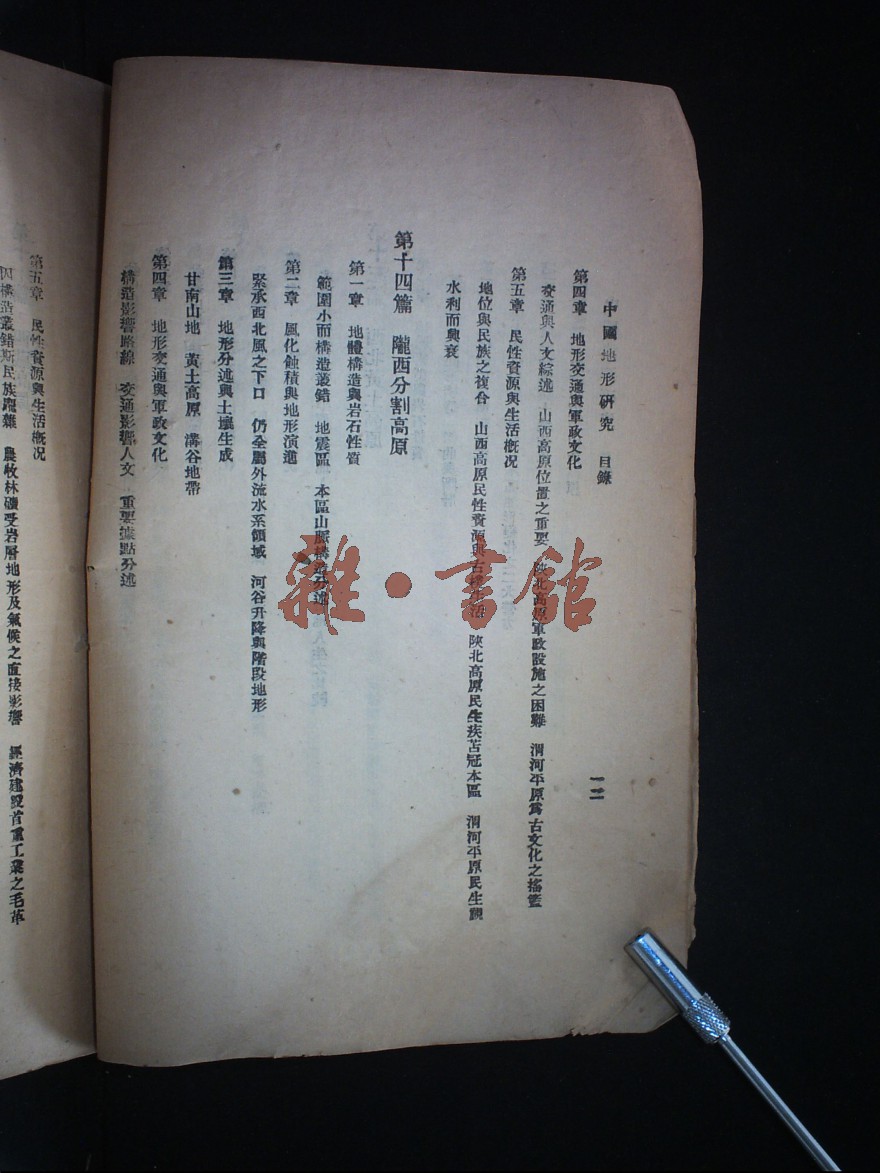 中國地形研究 目錄
一二
第四章 地形交通與軍政文化
交通與人文綜述 山西高原位置之重要 陝北高原軍政設施之困難 渭河平原爲古文化之搖籃
第五章 民性資源與生活概况
地位與民族之複合 山西高原民性資源與古樸生活 陝北高原民生疾苦冠本區 渭河平原民生觀
水利而興衰
第十四篇 隴西分割高原
第一章 地體構造與岩石性質
範圍小而構造叢錯 地震區 本區山脈構造分述
第二章 風化蝕積與地形演進
緊承西北風之下口 仍全屬外流水系領域 河谷升降與階段地形
第三章 地形分述與土壤生成
甘南山地 黃土高原 溝谷地帶
第四章 地形交通與軍政文化
構造影響路線 交通影響人文 重要據點分述
第五章 民性資源與生活概况
因構造叢錯斯民族龐雜 農牧林礦受岩層地形及氣候之直接影響 經濟建設首重工業之毛革
雜·書館